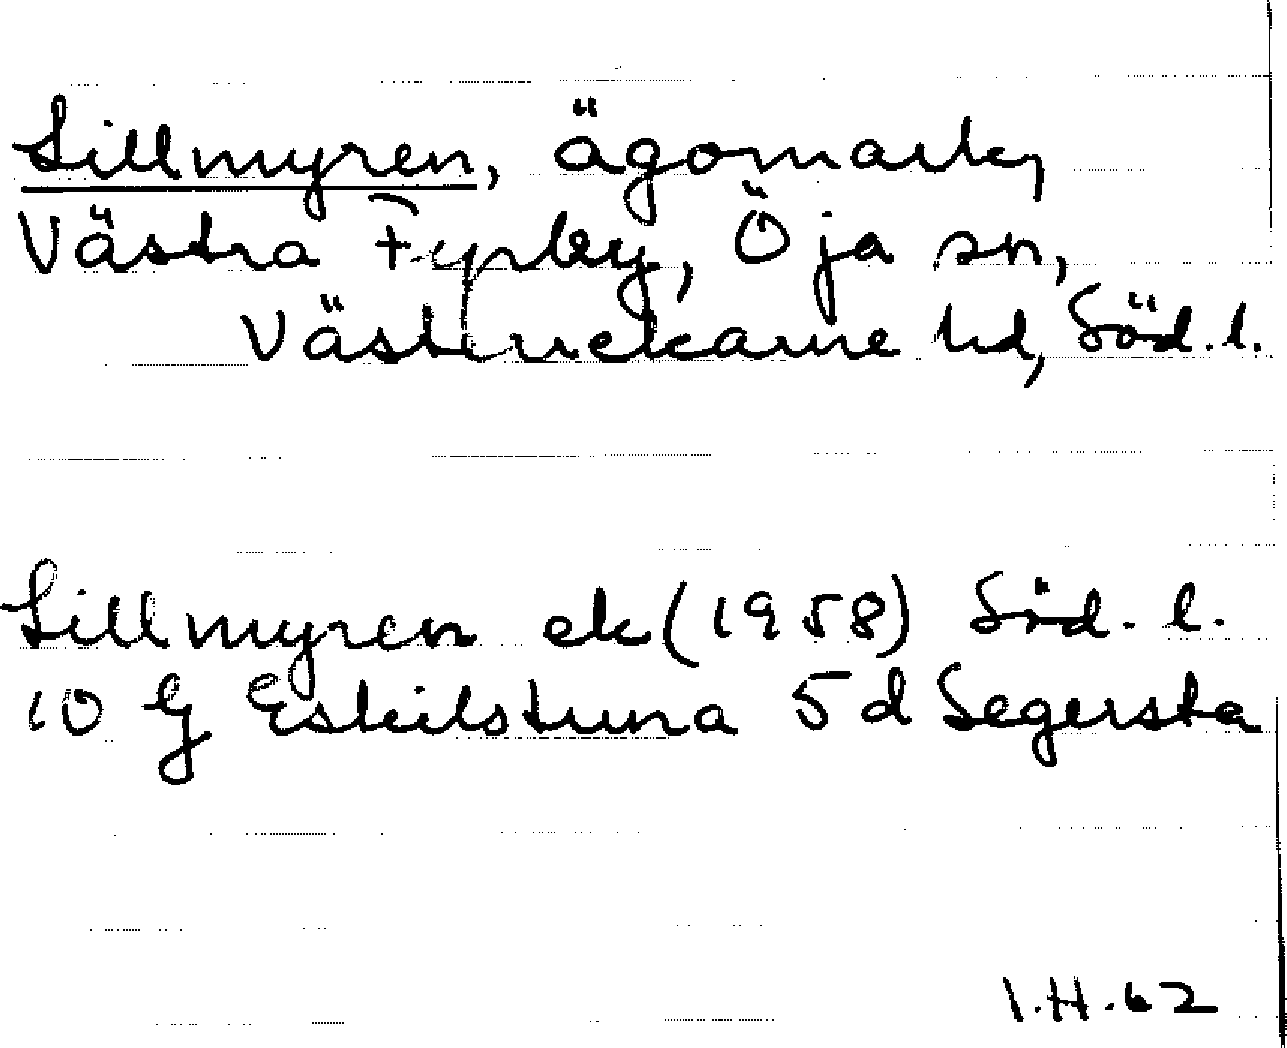 Sillmyren, ägomark,
Västra Fyrby, Öja sn,
Västerrekarne hd, Söd. l.
Sillmyren ek (1958) Söd. l.
10 G Eskilstuna 5 d Segersta
I.H. 62